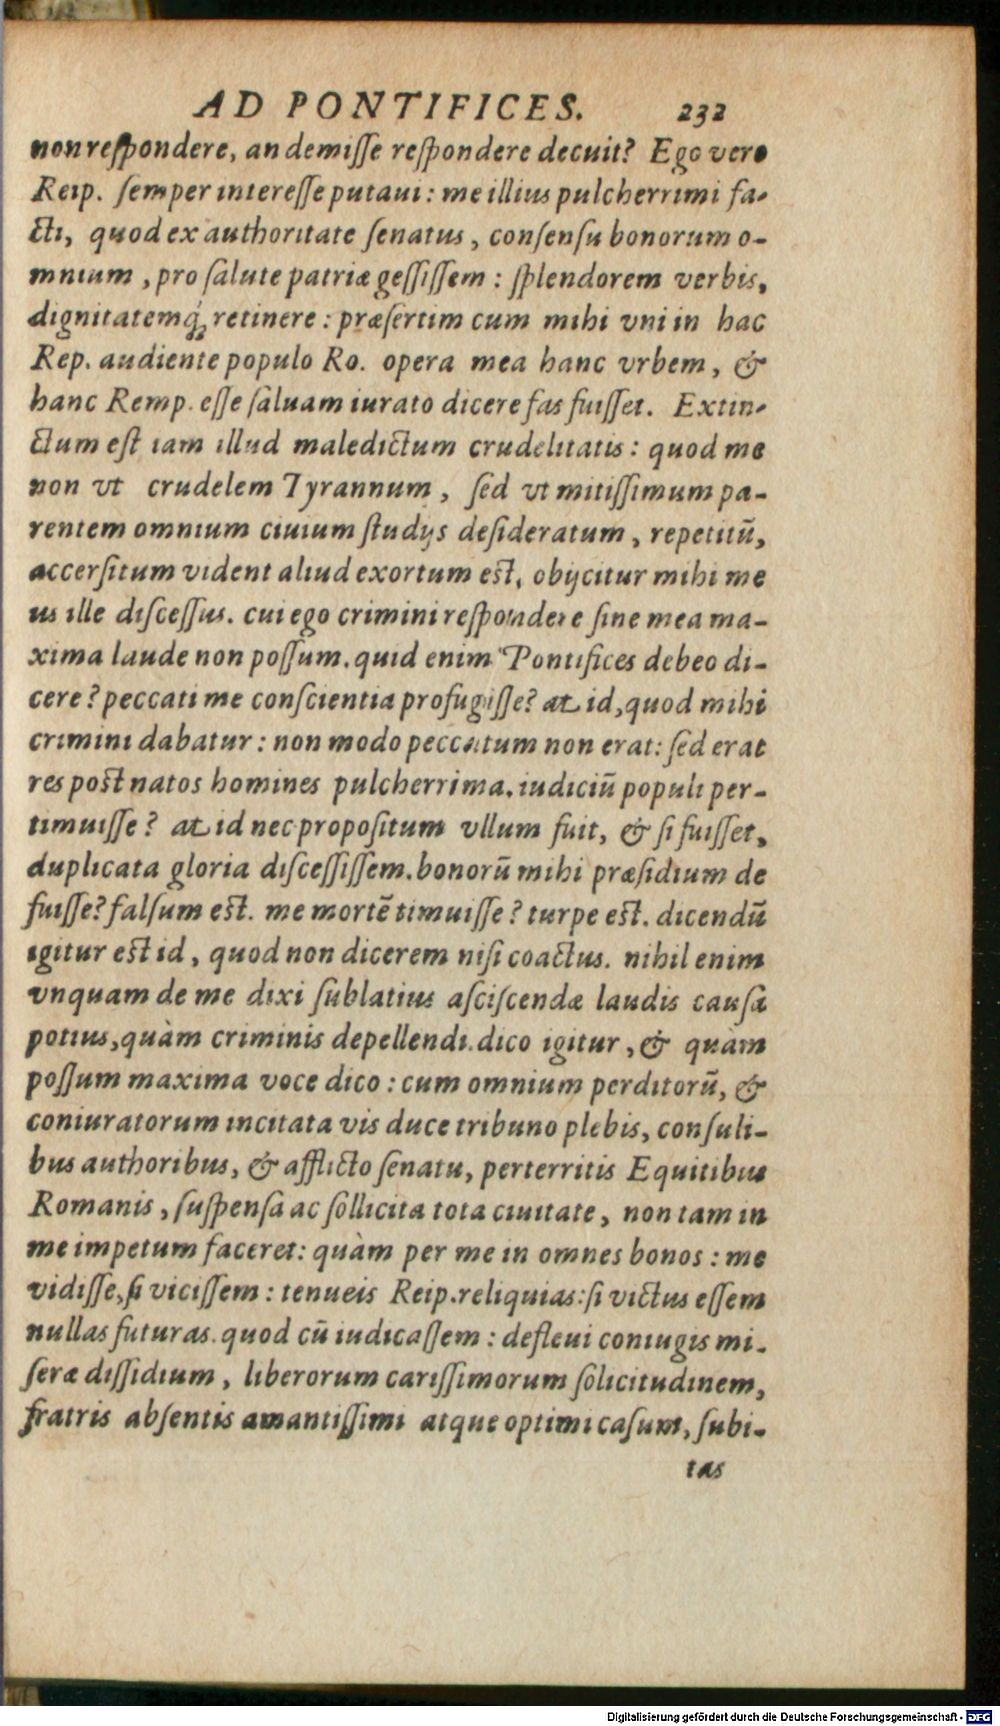 AD PONTIFICES. 232
non respondere, an demisse respondere decuit? Ego vero
Reip. semper interesse putaui: me illius pulcherrimi fa-
cti, quod ex authoritate senatus, consensu bonorum o-
mnium, pro salute patriæ gessissem: splendorem verbis,
dignitatemq́; retinere: præsertim cum mihi vni in hac
Rep. audiente populo Ro. opera mea hanc vrbem, &
hanc Remp. esse saluam iurato dicere fas fuisset. Extin-
ctum est iam illud maledictum crudelitatis: quod me
non vt crudelem Tyrannum, sed vt mitissimum pa-
rentem omnium ciuium studijs desideratum, repetitū,
accersitum vident aliud exortum est, obijcitur mihi me
us ille discessus. cui ego crimini respondere sine mea ma-
xima laude non possum. quid enim Pontifices debeo di-
cere? peccati me conscientia profugisse? at id, quod mihi
crimini dabatur: non modo peccatum non erat: sed erat
res post natos homines pulcherrima. iudiciū populi per-
timuisse? at id nec propositum vllum fuit, & si fuisset,
duplicata gloria discessissem. bonorū mihi præsidium de
fuisse? falsum est. me mortē timuisse? turpe est. dicendū
igitur est id, quod non dicerem nisi coactus. nihil enim
vnquam de me dixi sublatius asciscendæ laudis causa
potius, quàm criminis depellendi. dico igitur, & quàm
possum maxima voce dico: cum omnium perditorū, &
coniuratorum incitata vis duce tribuno plebis, consuli-
bus authoribus, & afflicto senatu, perterritis Equitibus
Romanis, suspensa ac sollicita tota ciuitate, non tam in
me impetum faceret: quàm per me in omnes bonos: me
vidisse, si vicissem: tenueis Reip. reliquias: si victus essem
nullas futuras. quod cū iudicassem: defleui coniugis mi-
seræ dissidium, liberorum carissimorum solicitudinem,
fratris absentis amantissimi atque optimi casum, subi-
tas
Digitalisierung gefördert durch die Deutsche Forschungsgemeinschaft - DFG